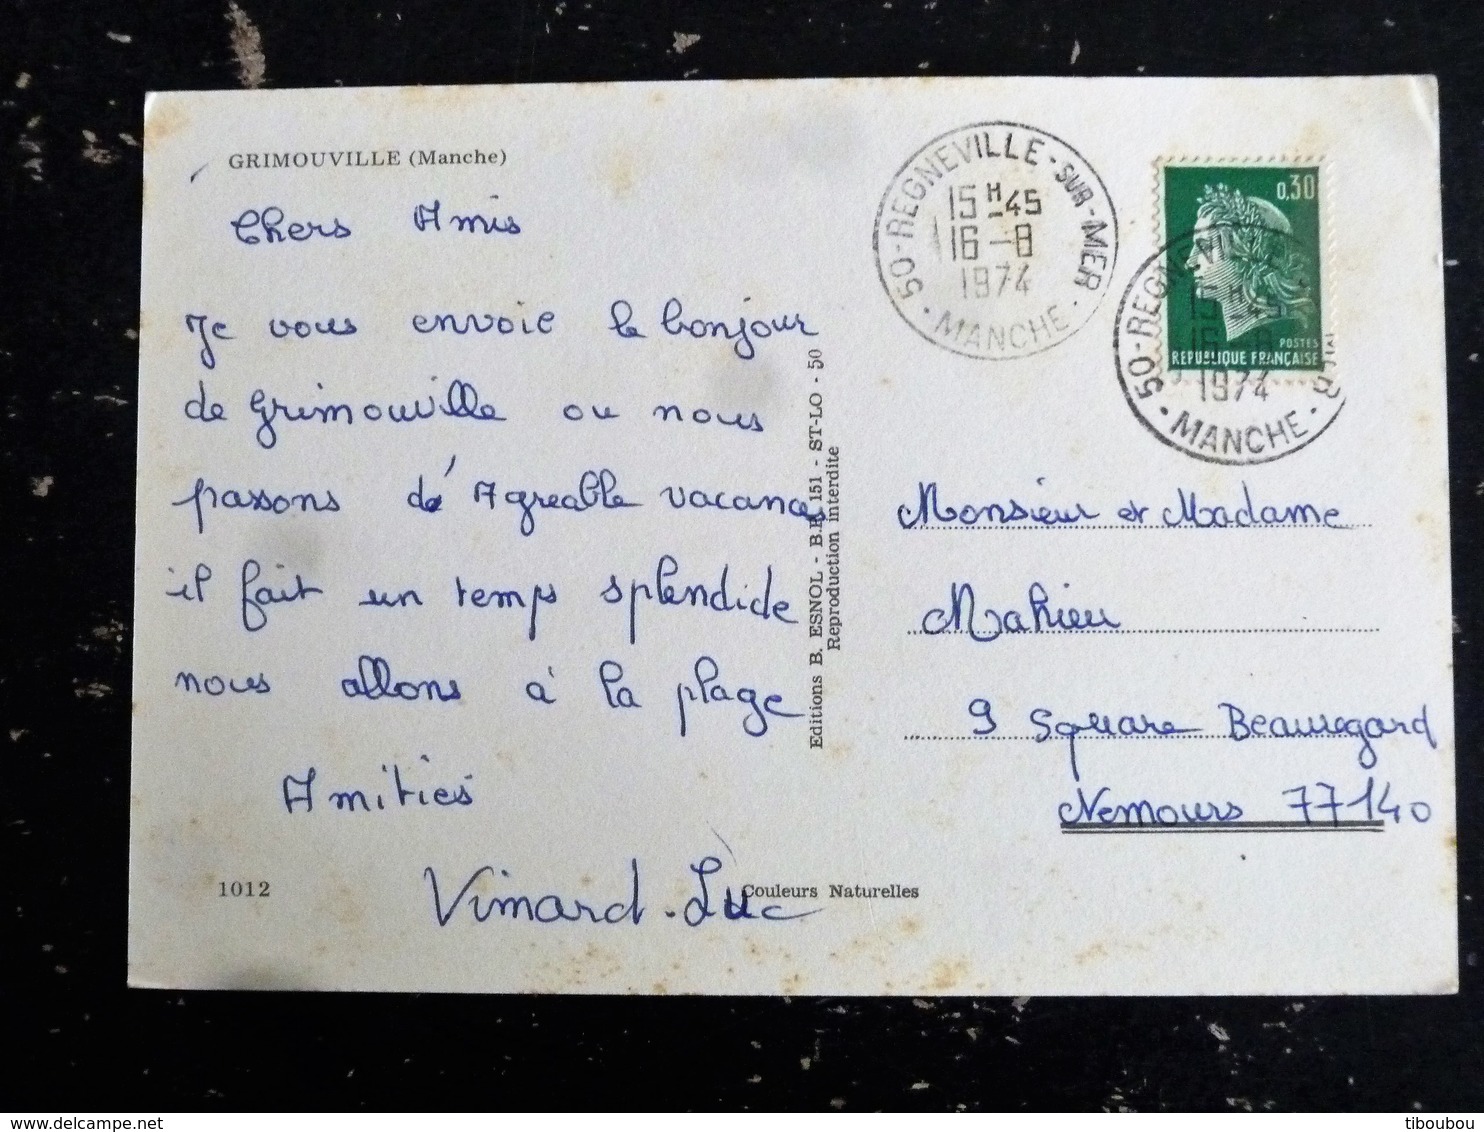 GRIMOUVILLE (Manche)
Chers Amis
Je vous envoie le bonjour
de Grimouville ou nous
passons de Agreable vacances
il fait un temps splendide
nous allons à la plage
Amitiés
Vimard - Luc
1012
Couleurs Naturelles
Editions B. ESNOL - B.P. 151 - ST-LO - 50
Reproduction interdite
50 - REGNEVILLE - SUR - MER
15 H -45
16 -8
1974
MANCHE
0,30
POSTES
REPUBLIQUE FRANÇAISE
50 - REGNEVI
15 H -45
16 -8
1974
MANCHE
Monsieur et Madame
Mahieu
9 Square Beauregard
Nemours 77140
tiboubou